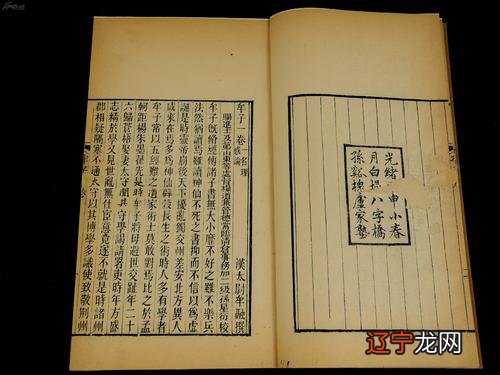 光緒 申小春
月白堤八字橋
孫谿槐廬家塾
牟子一卷
漢太尉牟融撰
賜進士及第山東等處督糧道兼管德常臨清倉事務加二級孫星衍校
牟子既修經傳諸子書無大小靡不好之雖不樂兵
法然猶讀焉雖讀神仙不死之書抑而不信以為虛
誕是時靈帝崩後天下擾亂獨交州差安北方異人
咸來在焉多為神仙辟穀長生之術時人多有學者
牟子常以五經難之道家術士莫敢對焉比之於孟
軻距楊朱墨翟先是時牟子將母避世交趾年二十
六歸蒼梧娶妻太守聞其守學謁請署吏時年方盛
志精於學又見世亂無仕宦意竟遂不就是時諸州
郡相疑隔塞不通太守以其博學多識使致敬荊州
辽宁龙网